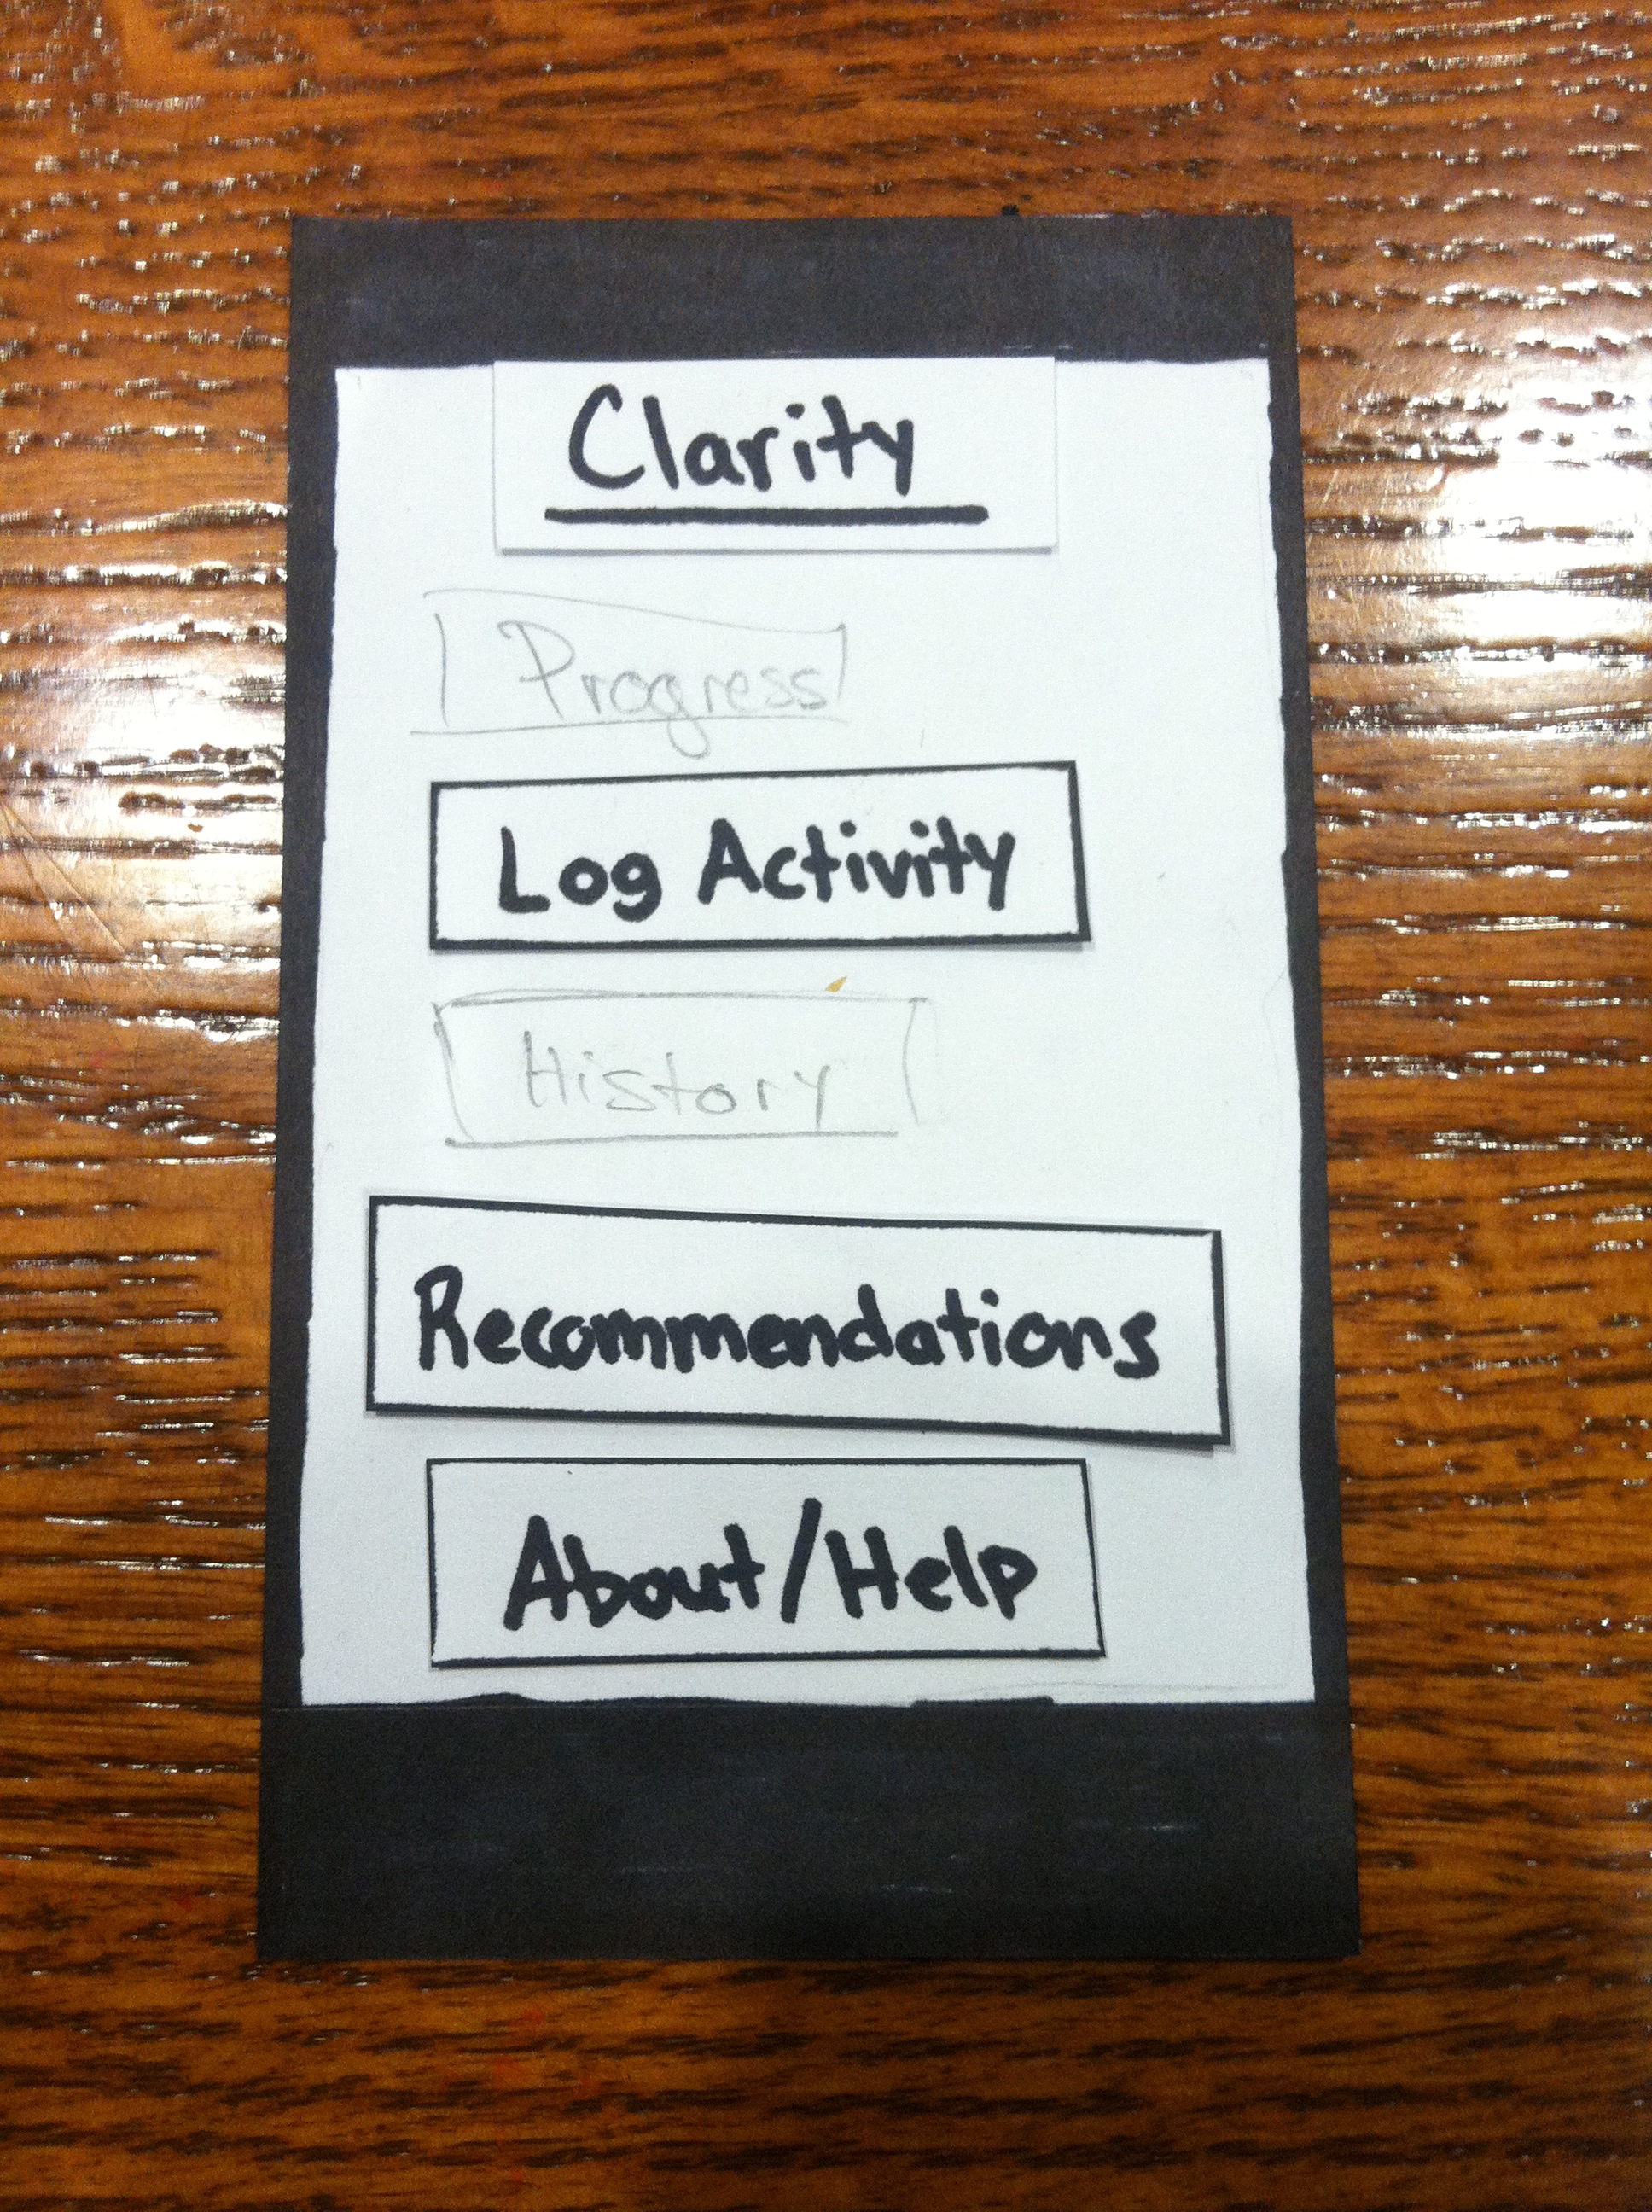 Clarity
Progress
Log Activity
History
Recommendations
About/Help